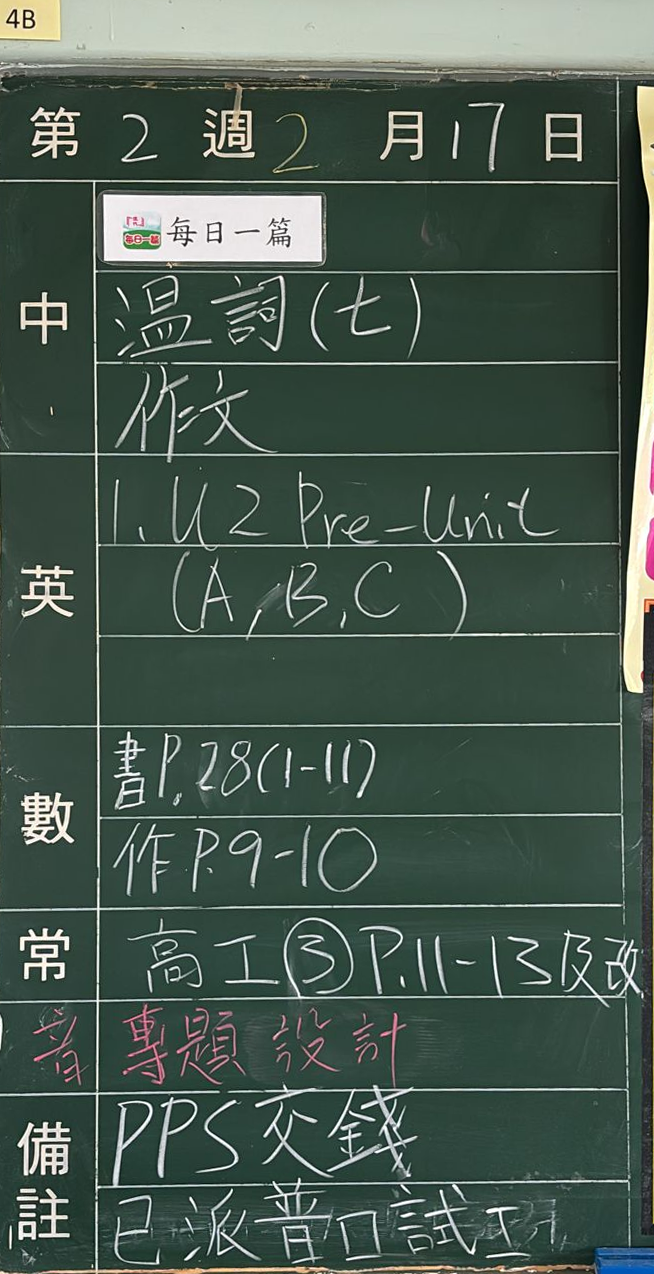 4B
第 2 週 2 月 17 日
中
每日一篇 每日一篇
溫詞(七)
作文
英
1. U2 Pre-Unit
(A, B, C)
數
書P.28(1-11)
作P.9-10
常
高工③P.11-13及改
專題設計
備註
PPS交錢
已派普口試工